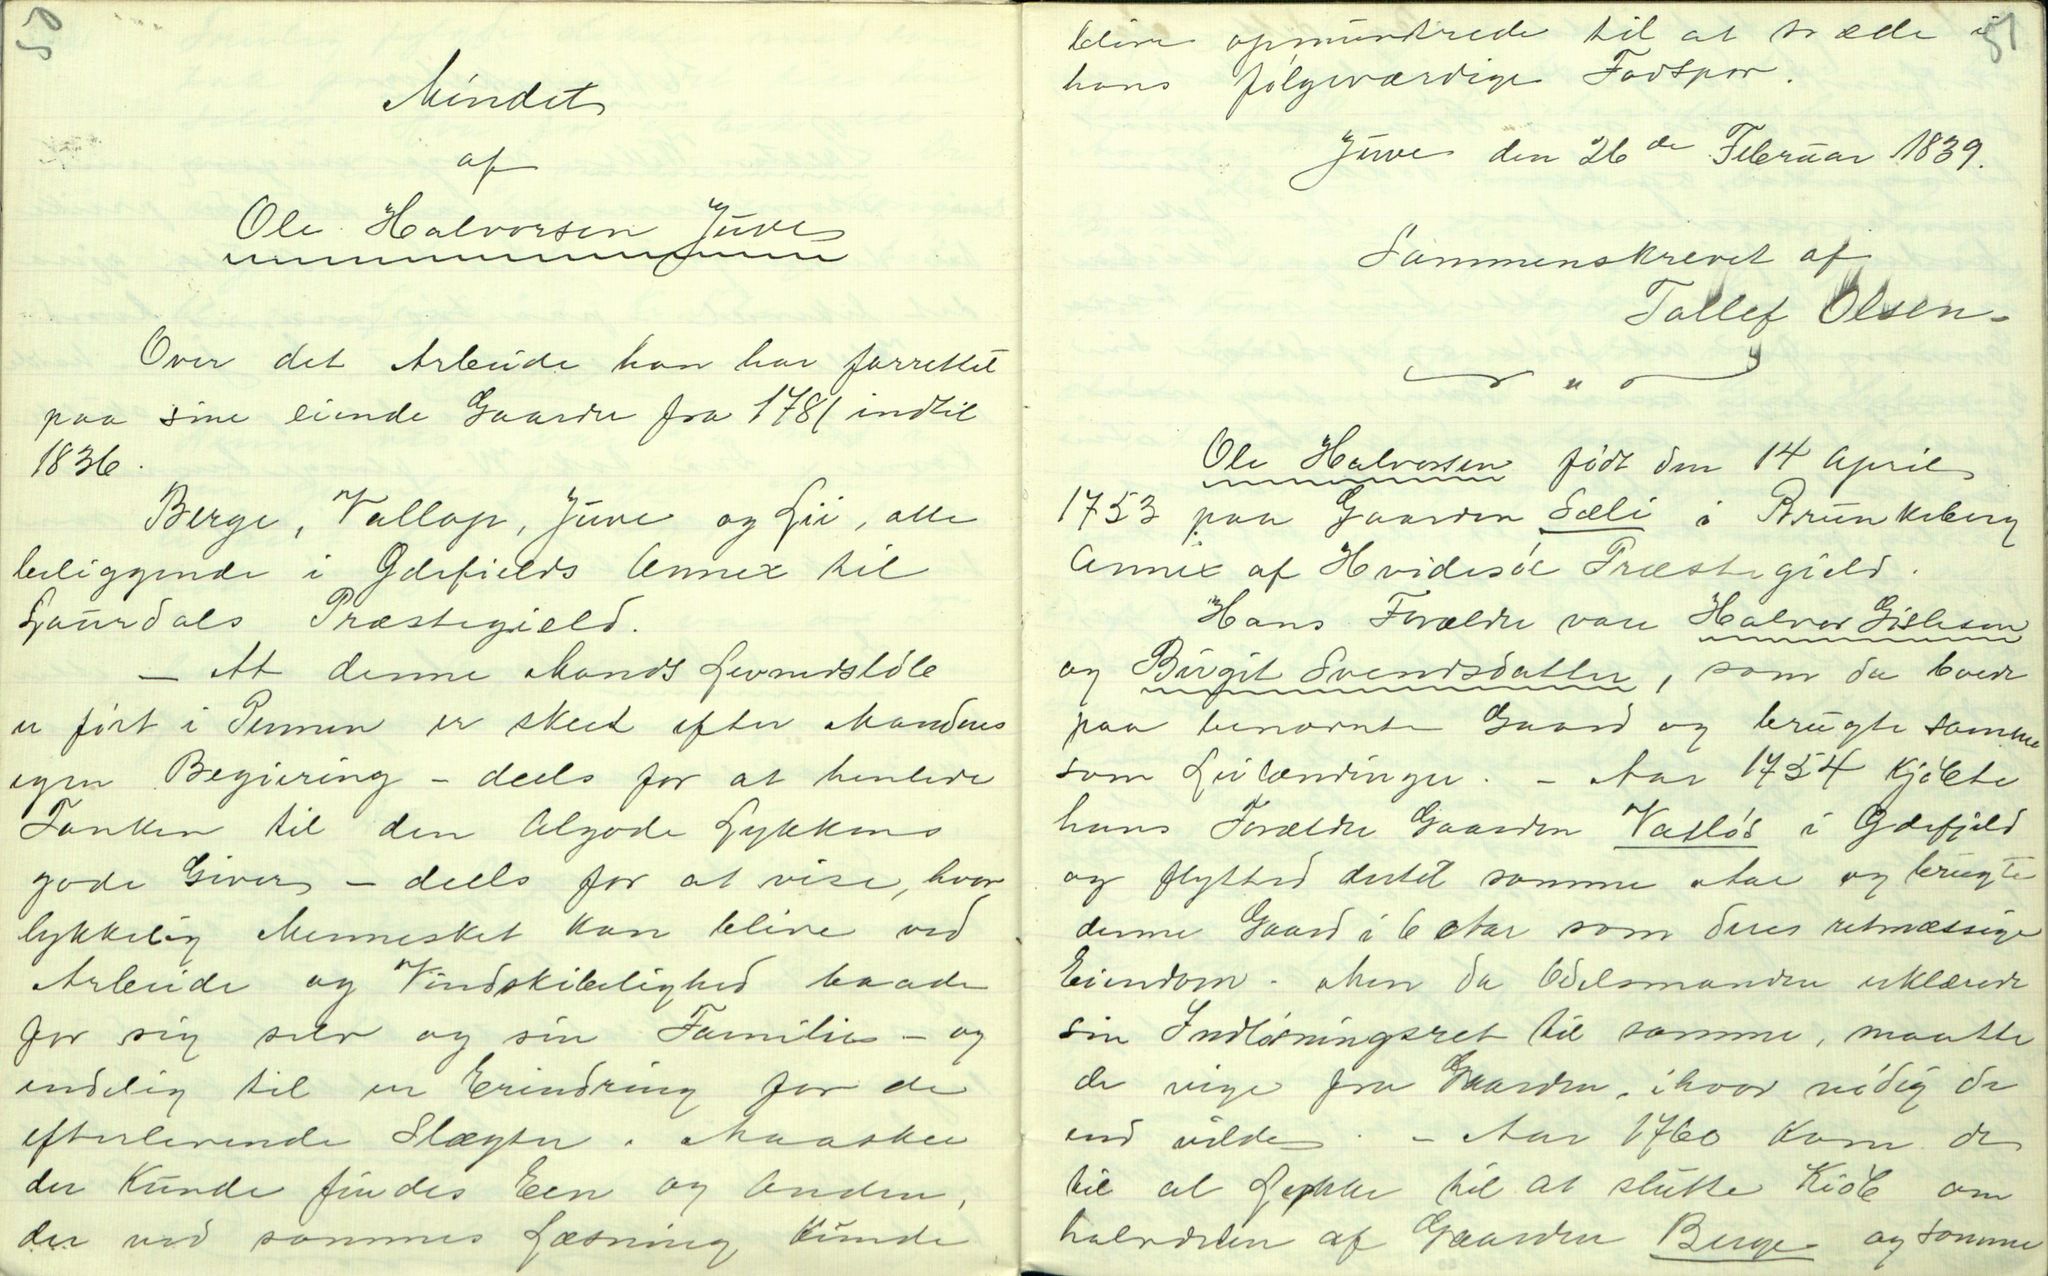 50
Mindet
af
Ole Halvorsen Juve
Over det Arbeide han har forrettet
paa sine eiende Gaarde fra 1781 indtil
1836.
Berge, Vallop, Juve og Lii, alle
beliggende i Gdefields Annex til
Laurdals Præstegield.
— At denne Mands Levnedsløb
er ført i Pennen er skeet efter Mandens
egen Begiering – deels for at henlede
Tanken til den Algode Lykkens
gode Giver – deels for at vise, hvor
lykkelig Mennesket kan blive ved
Arbeide og Vindskibelighed baade
for sig selv og sin Familie – og
endelig til en Erindring for de
efterlevende Slægter. Maaskee
der kunde findes Een og Anden,
der ved sammes Læsning kunde
51
blive opmuntrede til at træde i
hans følgeværdige Fodspor.
Juve den 26de Februar 1839.
Sammenskrevet af
Tallef Olsen.
Ole Halvorsen født den 14 April
1753 paa Gaarden Sæli i Brunkeberg
Annex af Hvidesøe Præstegield.
Hans Forældre vare Halvor Gisleson
og Birgit Svendsdatter, som da boede
paa benævnte Gaard og brugte samme
som Leilændinger. – Aar 1754 kjøbte
hans Forældre Gaarden Vasløs i Gdefjeld
og flytted dertil samme Aar og brugte
denne Gaard i 6 Aar som deres retmæssige
Eiendom. Men da Odelsmanden erklærede
sin Indløsningsret til samme, maatte
de vige fra Gaarden, ihvor nødig de
end vilde. – Aar 1760 kom de
til al Lykke til at slutte Kiøb om
halvdelen af Gaarden Berge og samme